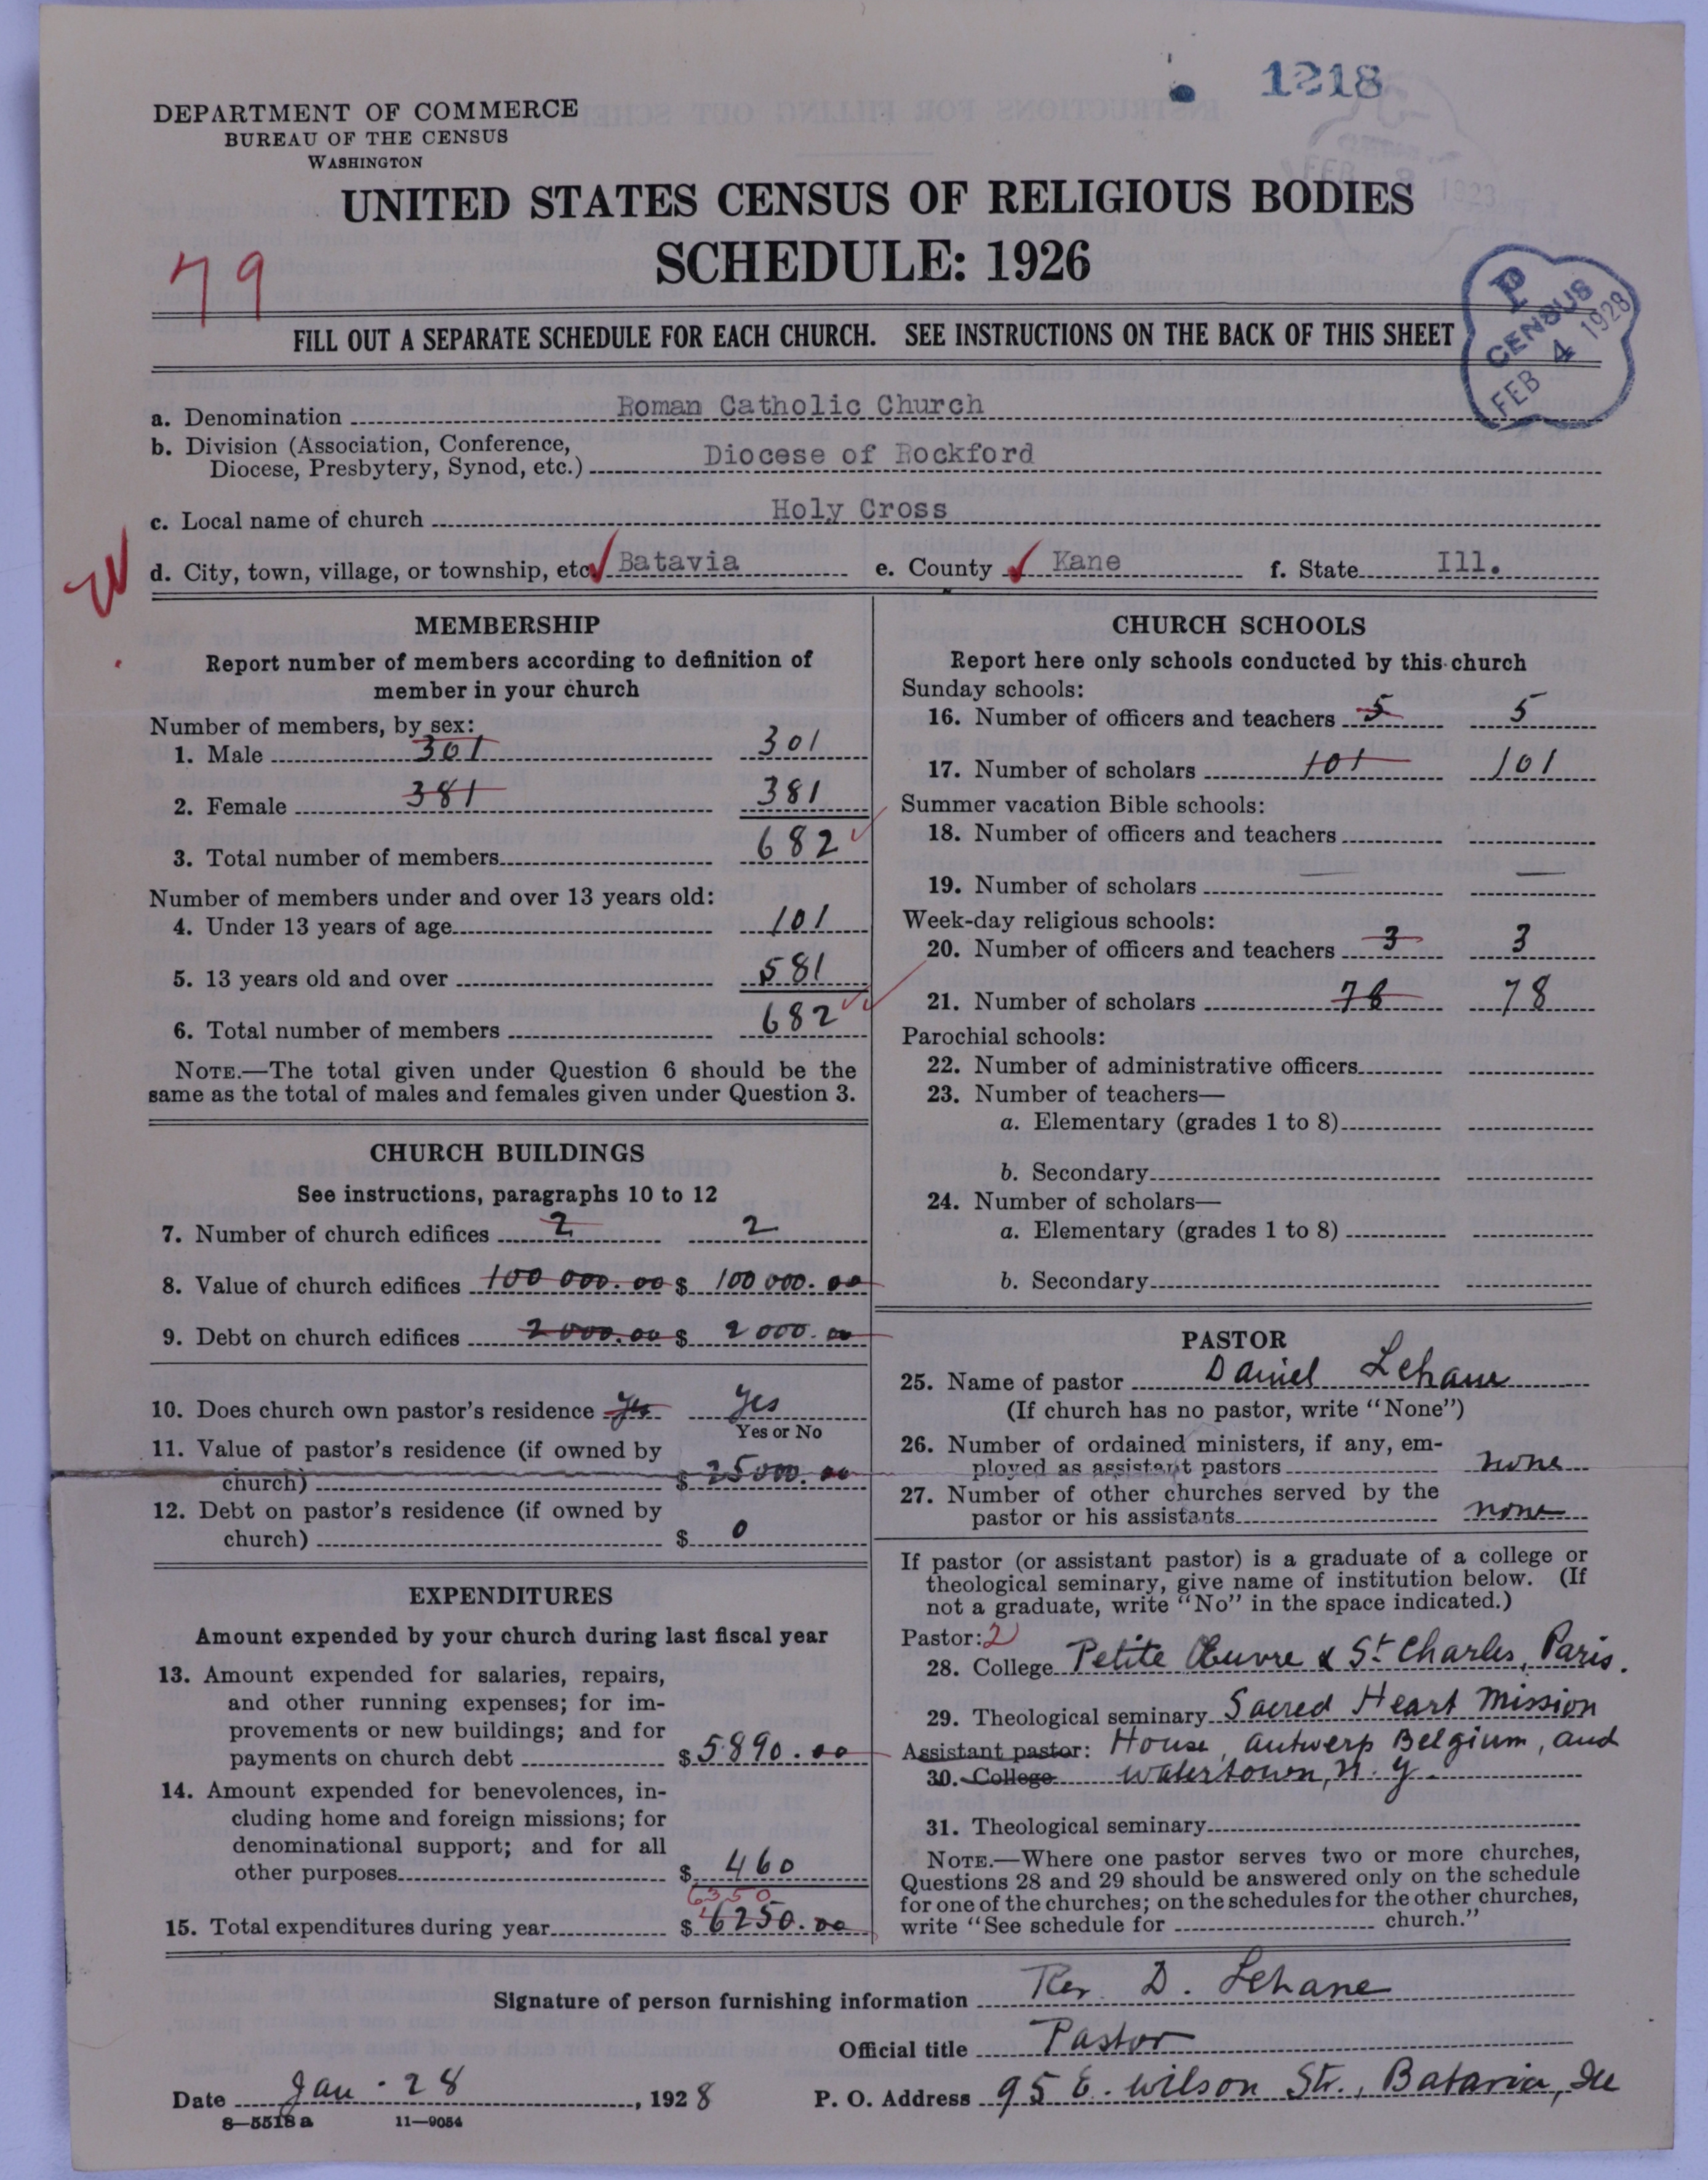 1218
DEPARTMENT OF COMMERCE
BUREAU OF THE CENSUS
WASHINGTON
UNITED STATES CENSUS OF RELIGIOUS BODIES
SCHEDULE: 1926
79
P
CENSUS
FEB 4 1928
FILL OUT A SEPARATE SCHEDULE FOR EACH CHURCH. SEE INSTRUCTIONS ON THE BACK OF THIS SHEET
a. Denomination Roman Catholic Church
b. Division (Association, Conference,
Diocese, Presbytery, Synod, etc.) Diocese of Rockford
c. Local name of church Holy Cross
d. City, town, village, or township, etc. Batavia e. County Kane f. State Ill.
MEMBERSHIP
Report number of members according to definition of
member in your church
Number of members, by sex:
1. Male 301 301
2. Female 381 381
3. Total number of members 682
Number of members under and over 13 years old:
4. Under 13 years of age 101
5. 13 years old and over 581
6. Total number of members 682
NOTE.—The total given under Question 6 should be the
same as the total of males and females given under Question 3.
CHURCH BUILDINGS
See instructions, paragraphs 10 to 12
7. Number of church edifices 2 2
8. Value of church edifices 100 000.00 $ 100 000.00
9. Debt on church edifices 2000.00 $ 2000.00
10. Does church own pastor's residence yes yes
Yes or No
11. Value of pastor's residence (if owned by
church) $ 25000.00
12. Debt on pastor's residence (if owned by
church) $ 0
EXPENDITURES
Amount expended by your church during last fiscal year
13. Amount expended for salaries, repairs,
and other running expenses; for im-
provements or new buildings; and for
payments on church debt $ 5890.00
14. Amount expended for benevolences, in-
cluding home and foreign missions; for
denominational support; and for all
other purposes $ 460
6350
15. Total expenditures during year $ 6250.00
CHURCH SCHOOLS
Report here only schools conducted by this church
Sunday schools:
16. Number of officers and teachers 5 5
17. Number of scholars 101 101
Summer vacation Bible schools:
18. Number of officers and teachers
19. Number of scholars
Week-day religious schools:
20. Number of officers and teachers 3 3
21. Number of scholars 78 78
Parochial schools:
22. Number of administrative officers
23. Number of teachers—
a. Elementary (grades 1 to 8)
b. Secondary
24. Number of scholars—
a. Elementary (grades 1 to 8)
b. Secondary
PASTOR
25. Name of pastor Daniel Lehane
(If church has no pastor, write "None")
26. Number of ordained ministers, if any, em-
ployed as assistant pastors none
27. Number of other churches served by the
pastor or his assistants none
If pastor (or assistant pastor) is a graduate of a college or
theological seminary, give name of institution below. (If
not a graduate, write "No" in the space indicated.)
Pastor: 2
28. College Petite Œuvre & St Charles, Paris.
29. Theological seminary Sacred Heart Mission
Assistant pastor: House, Antwerp Belgium, and
30. College Watertown, N. Y.
31. Theological seminary
NOTE.—Where one pastor serves two or more churches,
Questions 28 and 29 should be answered only on the schedule
for one of the churches; on the schedules for the other churches,
write "See schedule for church."
Signature of person furnishing information Rev. D. Lehane
Official title Pastor
Date Jan - 28, 1928 P. O. Address 95 E. Wilson Str., Batavia, Ill
8—5518 a 11—9054